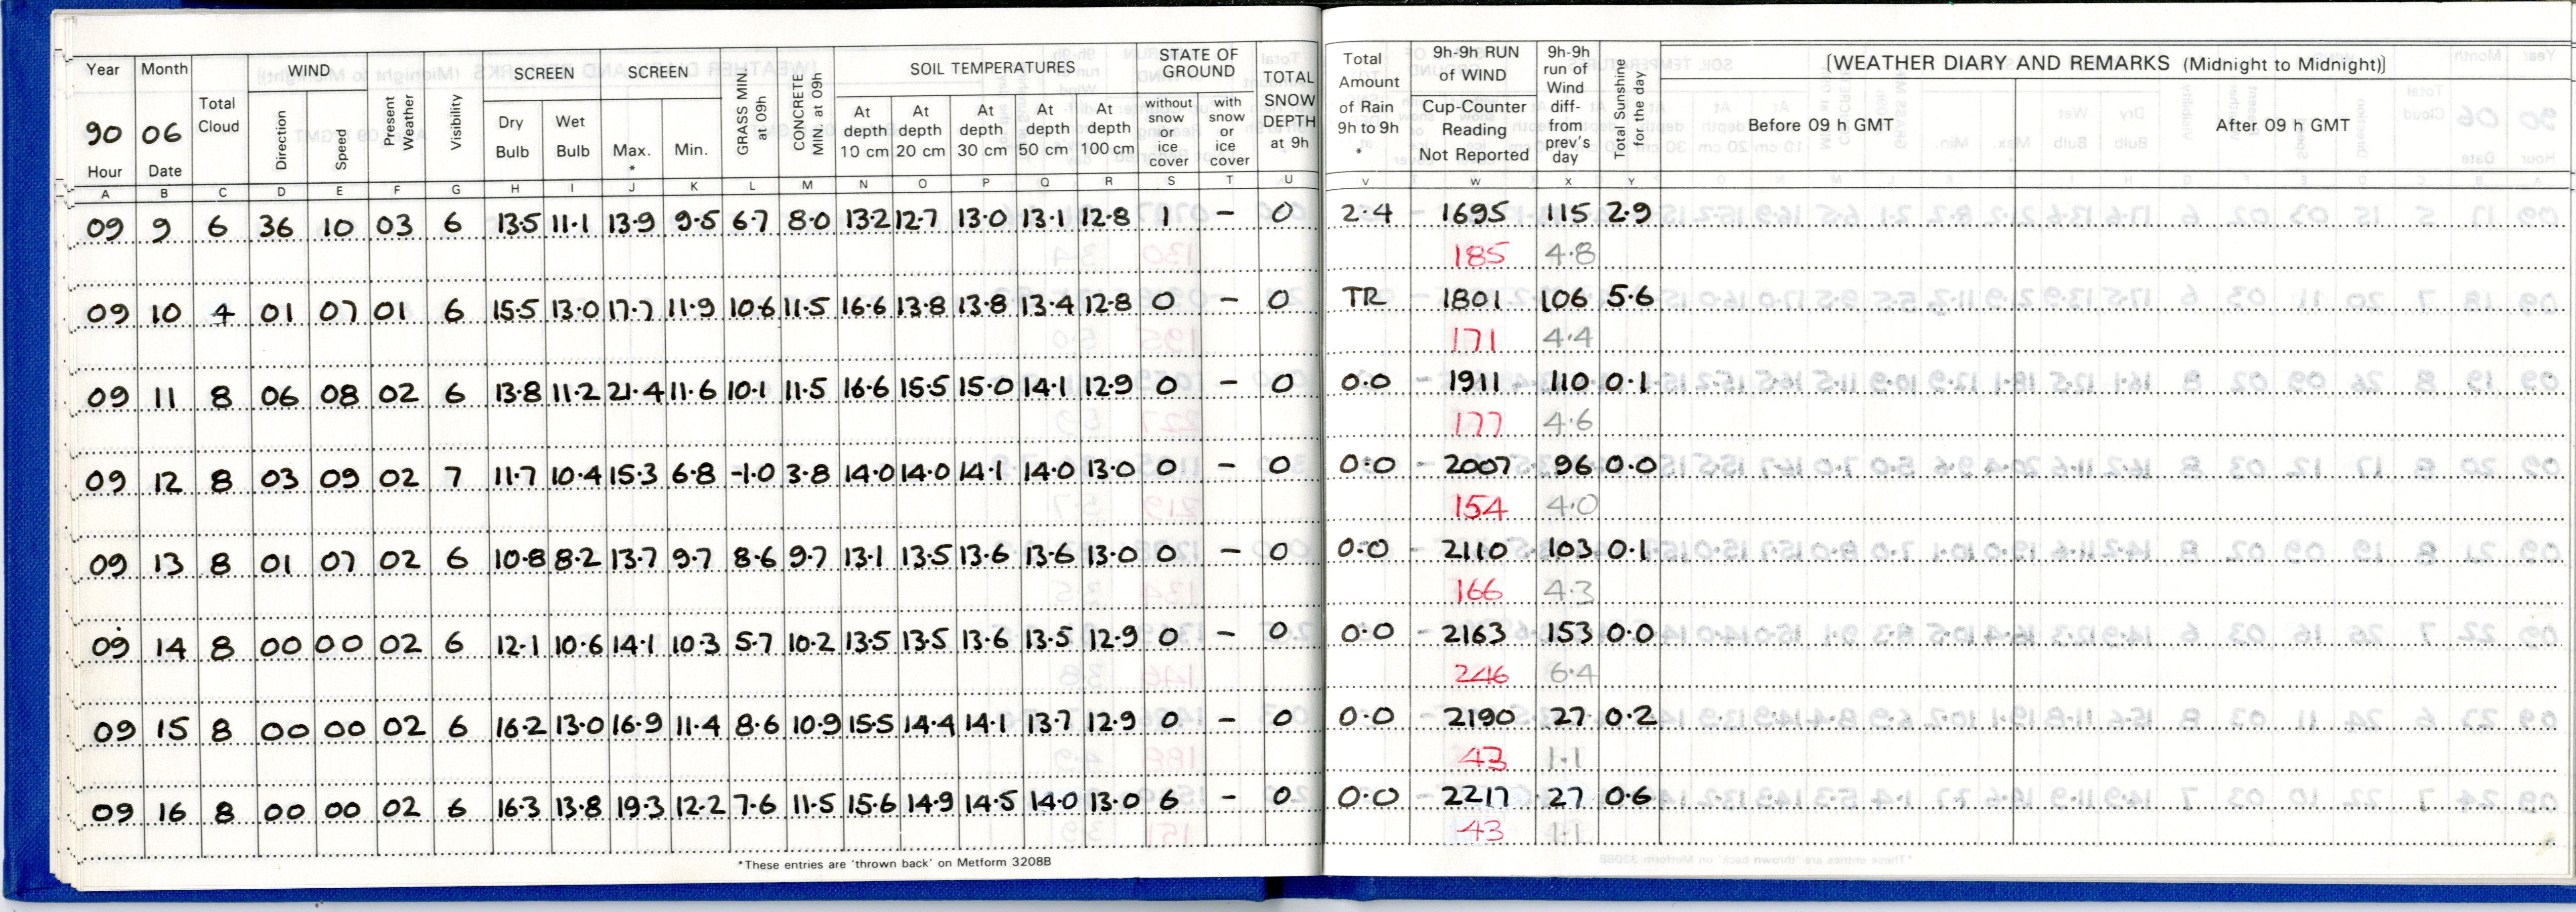 Year Month Total Cloud WIND Present Weather Visibility SCREEN SCREEN GRASS MIN. at 09h CONCRETE MIN. at 09h SOIL TEMPERATURES STATE OF GROUND TOTAL SNOW DEPTH at 9h Total Amount of Rain 9h to 9h * 9h-9h RUN of WIND 9h-9h run of Wind diff- from prev's day Total Sunshine for the day [WEATHER DIARY AND REMARKS (Midnight to Midnight)]
90 06 Direction Speed Dry Bulb Wet Bulb Max. * Min. At depth 10 cm At depth 20 cm At depth 30 cm At depth 50 cm At depth 100 cm without snow or ice cover with snow or ice cover Cup-Counter Reading Not Reported Before 09 h GMT After 09 h GMT
Hour Date
A B C D E F G H I J K L M N O P Q R S T U V W X Y
09 9 6 36 10 03 6 13.5 11.1 13.9 9.5 6.7 8.0 13.2 12.7 13.0 13.1 12.8 1 – 0 2.4 1695 115 2.9
185 4.8
09 10 4 01 07 01 6 15.5 13.0 17.7 11.9 10.6 11.5 16.6 13.8 13.8 13.4 12.8 0 – 0 TR 1801 106 5.6
171 4.4
09 11 8 06 08 02 6 13.8 11.2 21.4 11.6 10.1 11.5 16.6 15.5 15.0 14.1 12.9 0 – 0 0.0 1911 110 0.1
177 4.6
09 12 8 03 09 02 7 11.7 10.4 15.3 6.8 -1.0 3.8 14.0 14.0 14.1 14.0 13.0 0 – 0 0.0 2007 96 0.0
154 4.0
09 13 8 01 07 02 6 10.8 8.2 13.7 9.7 8.6 9.7 13.1 13.5 13.6 13.6 13.0 0 – 0 0.0 2110 103 0.1
166 4.3
09 14 8 00 00 02 6 12.1 10.6 14.1 10.3 5.7 10.2 13.5 13.5 13.6 13.5 12.9 0 – 0 0.0 2163 153 0.0
246 6.4
09 15 8 00 00 02 6 16.2 13.0 16.9 11.4 8.6 10.9 15.5 14.4 14.1 13.7 12.9 0 – 0 0.0 2190 27 0.2
43 1.1
09 16 8 00 00 02 6 16.3 13.8 19.3 12.2 7.6 11.5 15.6 14.9 14.5 14.0 13.0 6 – 0 0.0 2217 27 0.6
43 1.1
*These entries are 'thrown back' on Metform 3208B